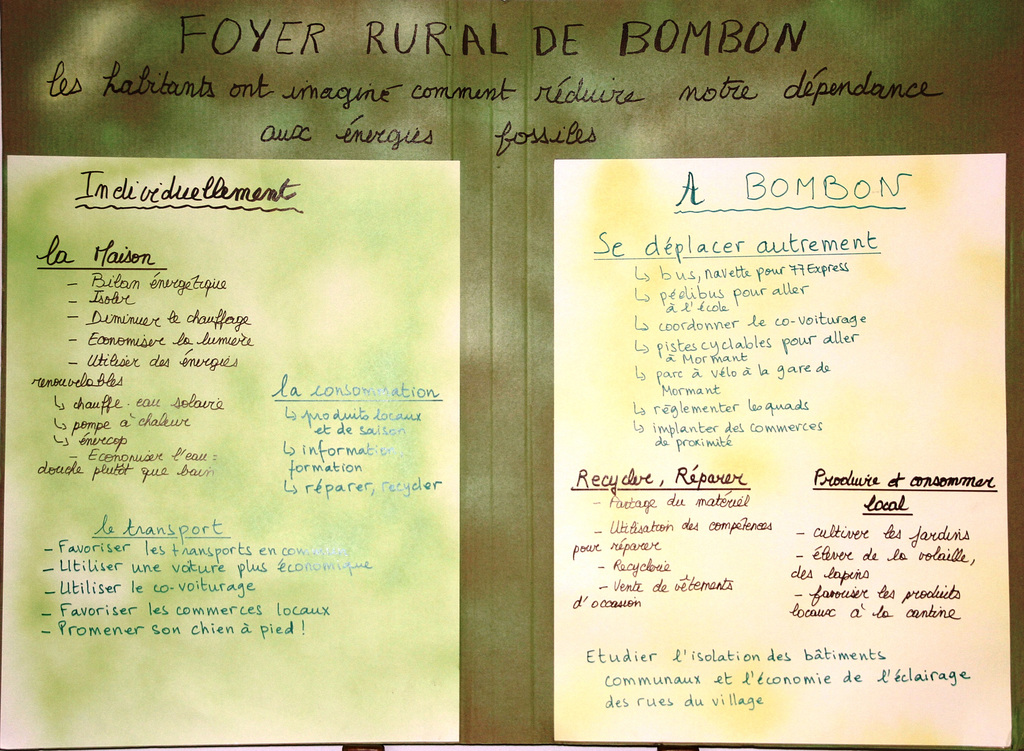 FOYER RURAL DE BOMBON
les habitants ont imaginé comment réduire notre dépendance
aux énergies fossiles
Individuellement
la Maison
- Bilan énergétique
- Isoler
- Diminuer le chauffage
- Economiser la lumière
- Utiliser des énergies
renouvelables
↳ chauffe-eau solaire
↳ pompe à chaleur
↳ énercop
- Economiser l'eau :
douche plutôt que bain
la consommation
↳ produits locaux
et de saison
↳ information,
formation
↳ réparer, recycler
le transport
- Favoriser les transports en commun
- Utiliser une voiture plus économique
- Utiliser le co-voiturage
- Favoriser les commerces locaux
- Promener son chien à pied !
A BOMBON
Se déplacer autrement
↳ bus, navette pour 77 Express
↳ pédibus pour aller
à l'école
↳ coordonner le co-voiturage
↳ pistes cyclables pour aller
à Mormant
↳ parc à vélo à la gare de
Mormant
↳ règlementer les quads
↳ implanter des commerces
de proximité
Recycler, Réparer
- Partage du matériel
- Utilisation des compétences
pour réparer
- Recyclerie
- Vente de vêtements
d'occasion
Produire et consommer
local
- cultiver les jardins
- élever de la volaille,
des lapins
- favoriser les produits
locaux à la cantine
Etudier l'isolation des bâtiments
communaux et l'économie de l'éclairage
des rues du village